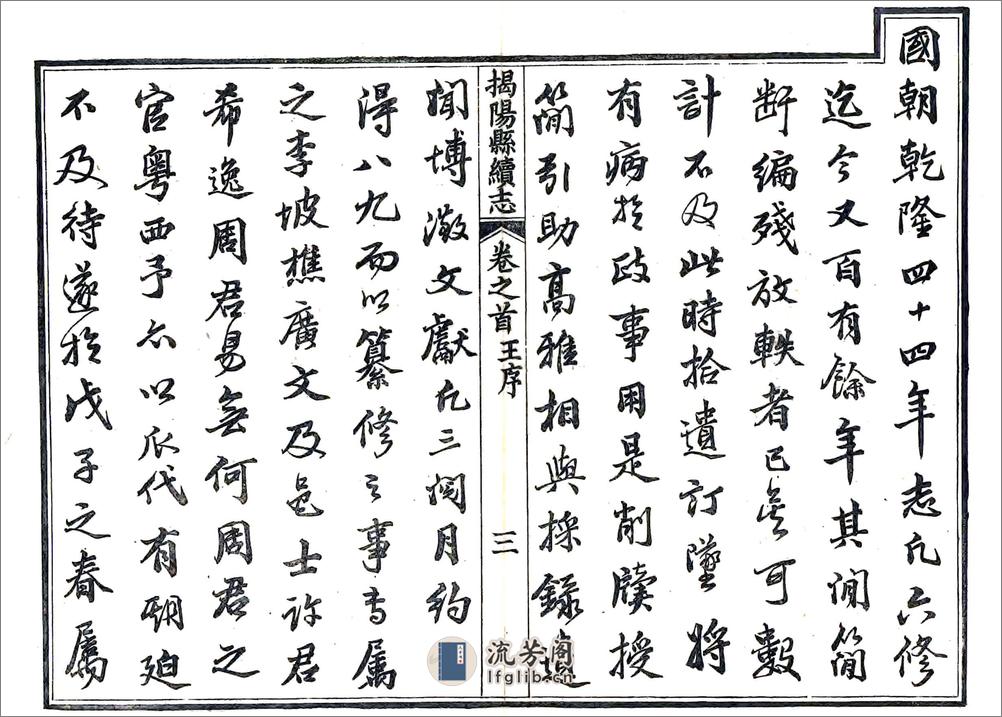 國朝乾隆四十四年志凡六修
迄今又百有餘年其間簡
断編殘放軼者已無可數
計不及此時拾遺訂墜將
有病於政事用是削牘授
簡引助高雅相與採録
揭陽縣續志 卷之首 王序 三
聞博澂文獻凡三閱月約
得八九而以纂修之事專属
之李坡樵廣文及邑士許君
希逸周君易無何周君之
官粤西予亦以瓜代有期廹
不及待遂於戊子之春屬
流芳阁
lfglib.cn